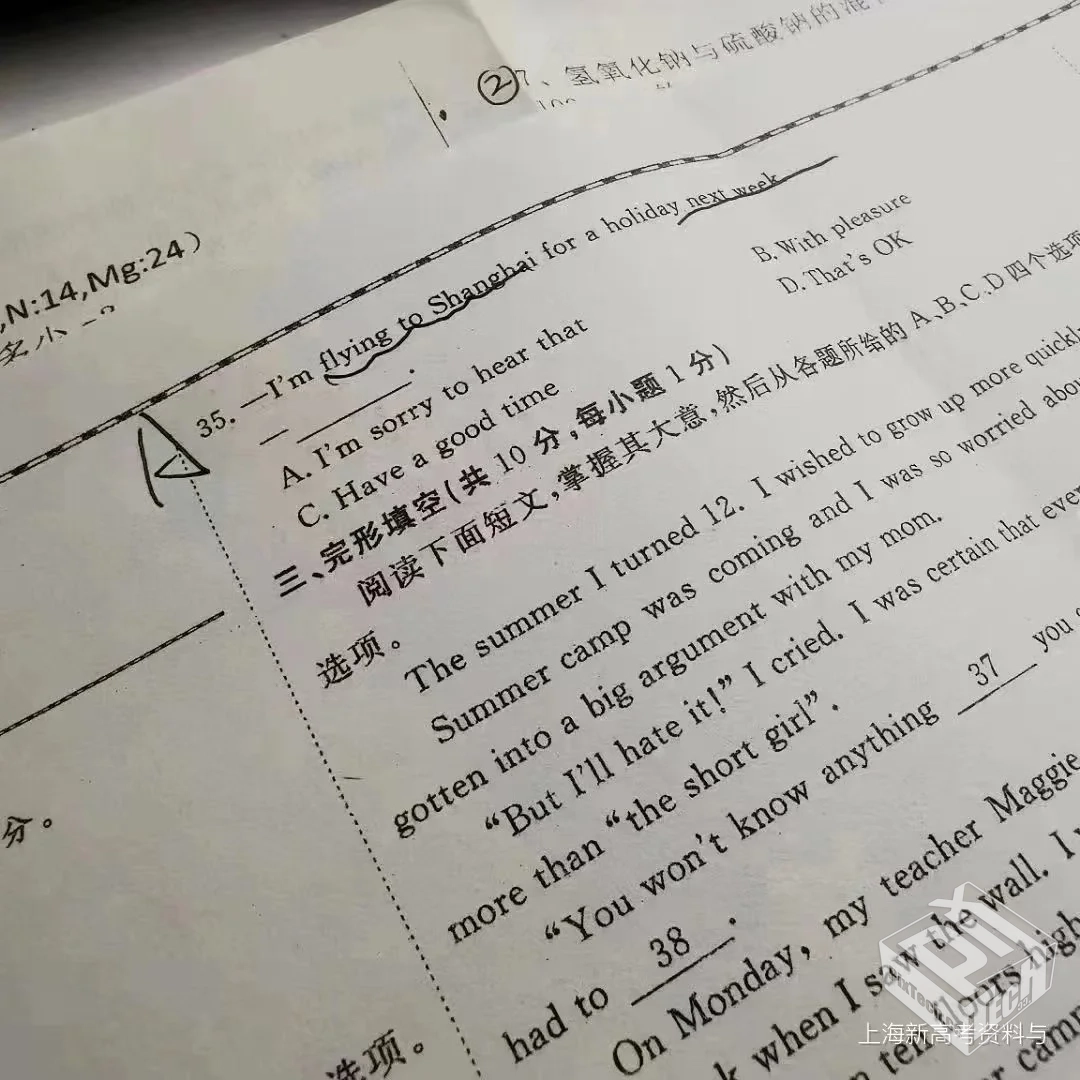 ②7、氢氧化钠与硫酸钠的混
,N:14,Mg:24)
35. —I'm flying to Shanghai for a holiday next week
— ________.
A. I'm sorry to hear that
B. With pleasure
C. Have a good time
D. That's OK
三、完形填空(共 10 分,每小题 1 分)
阅读下面短文,掌握其大意,然后从各题所给的 A、B、C、D 四个选项
选项。
The summer I turned 12. I wished to grow up more
Summer camp was coming and I was so worried
gotten into a big argument with my mom.
“But I'll hate it!” I cried. I was certain that
more than “the short girl”.
“You won't know anything 37 you
had to 38 .
On Monday, my teacher Maggie
when I saw the wall. I
ten floors high
分。
选项。
上海新高考资料与